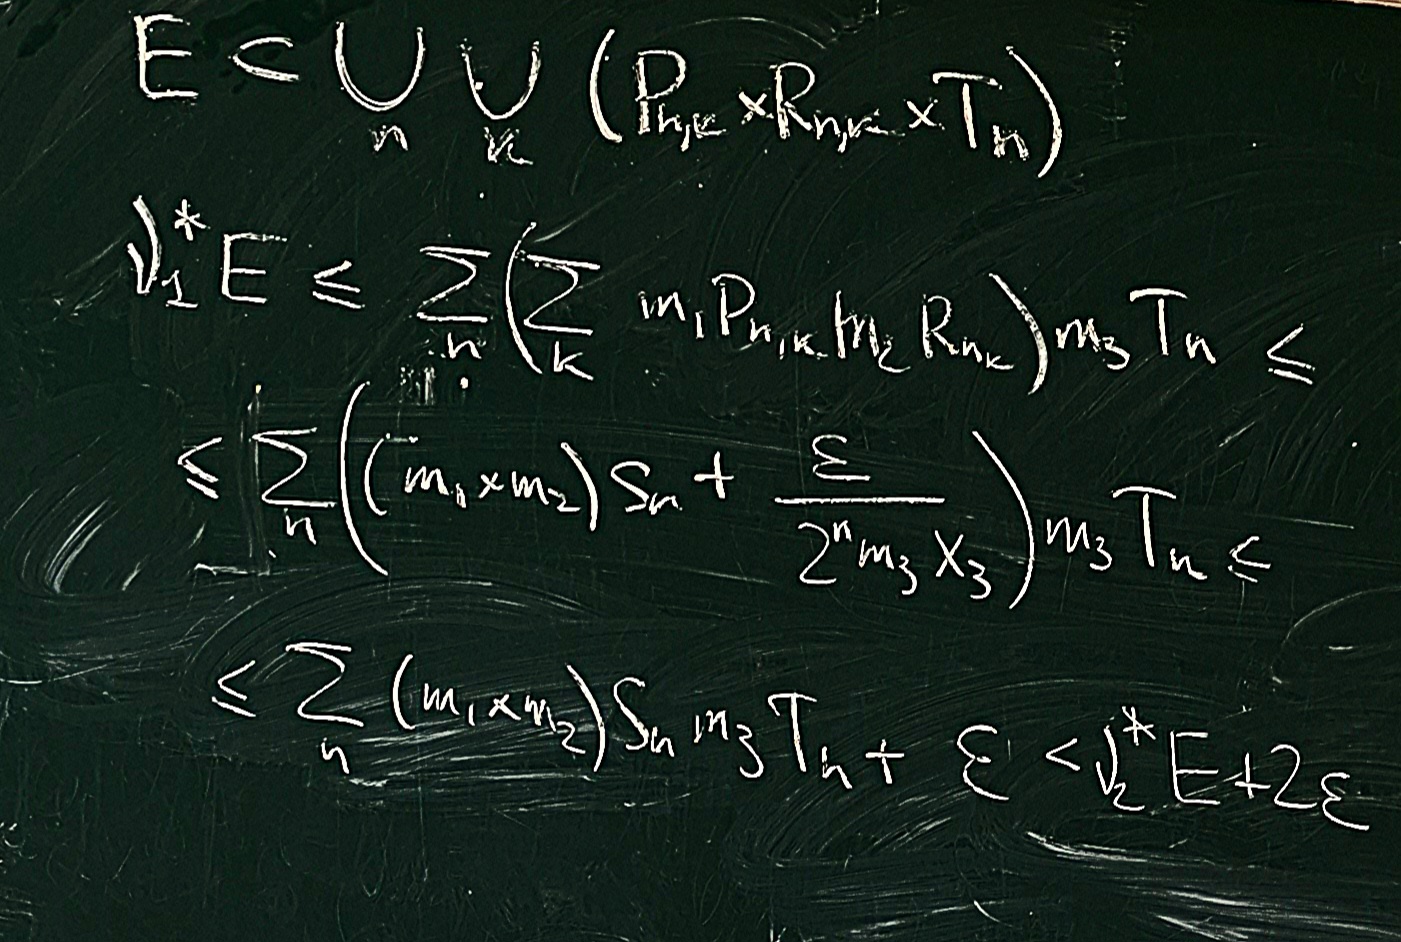 E ⊂ ⋃_n ⋃_k (P_{n,k} × R_{n,k} × T_n)
ν_1^* E ≤ ∑_n (∑_k m_1 P_{n,k} m_2 R_{nk}) m_3 T_n ≤
≤ ∑_n ((m_1 × m_2) S_n + ε / (2^n m_3 X_3)) m_3 T_n ≤
≤ ∑_n (m_1 × m_2) S_n m_3 T_n + ε < ν_2^* E + 2ε